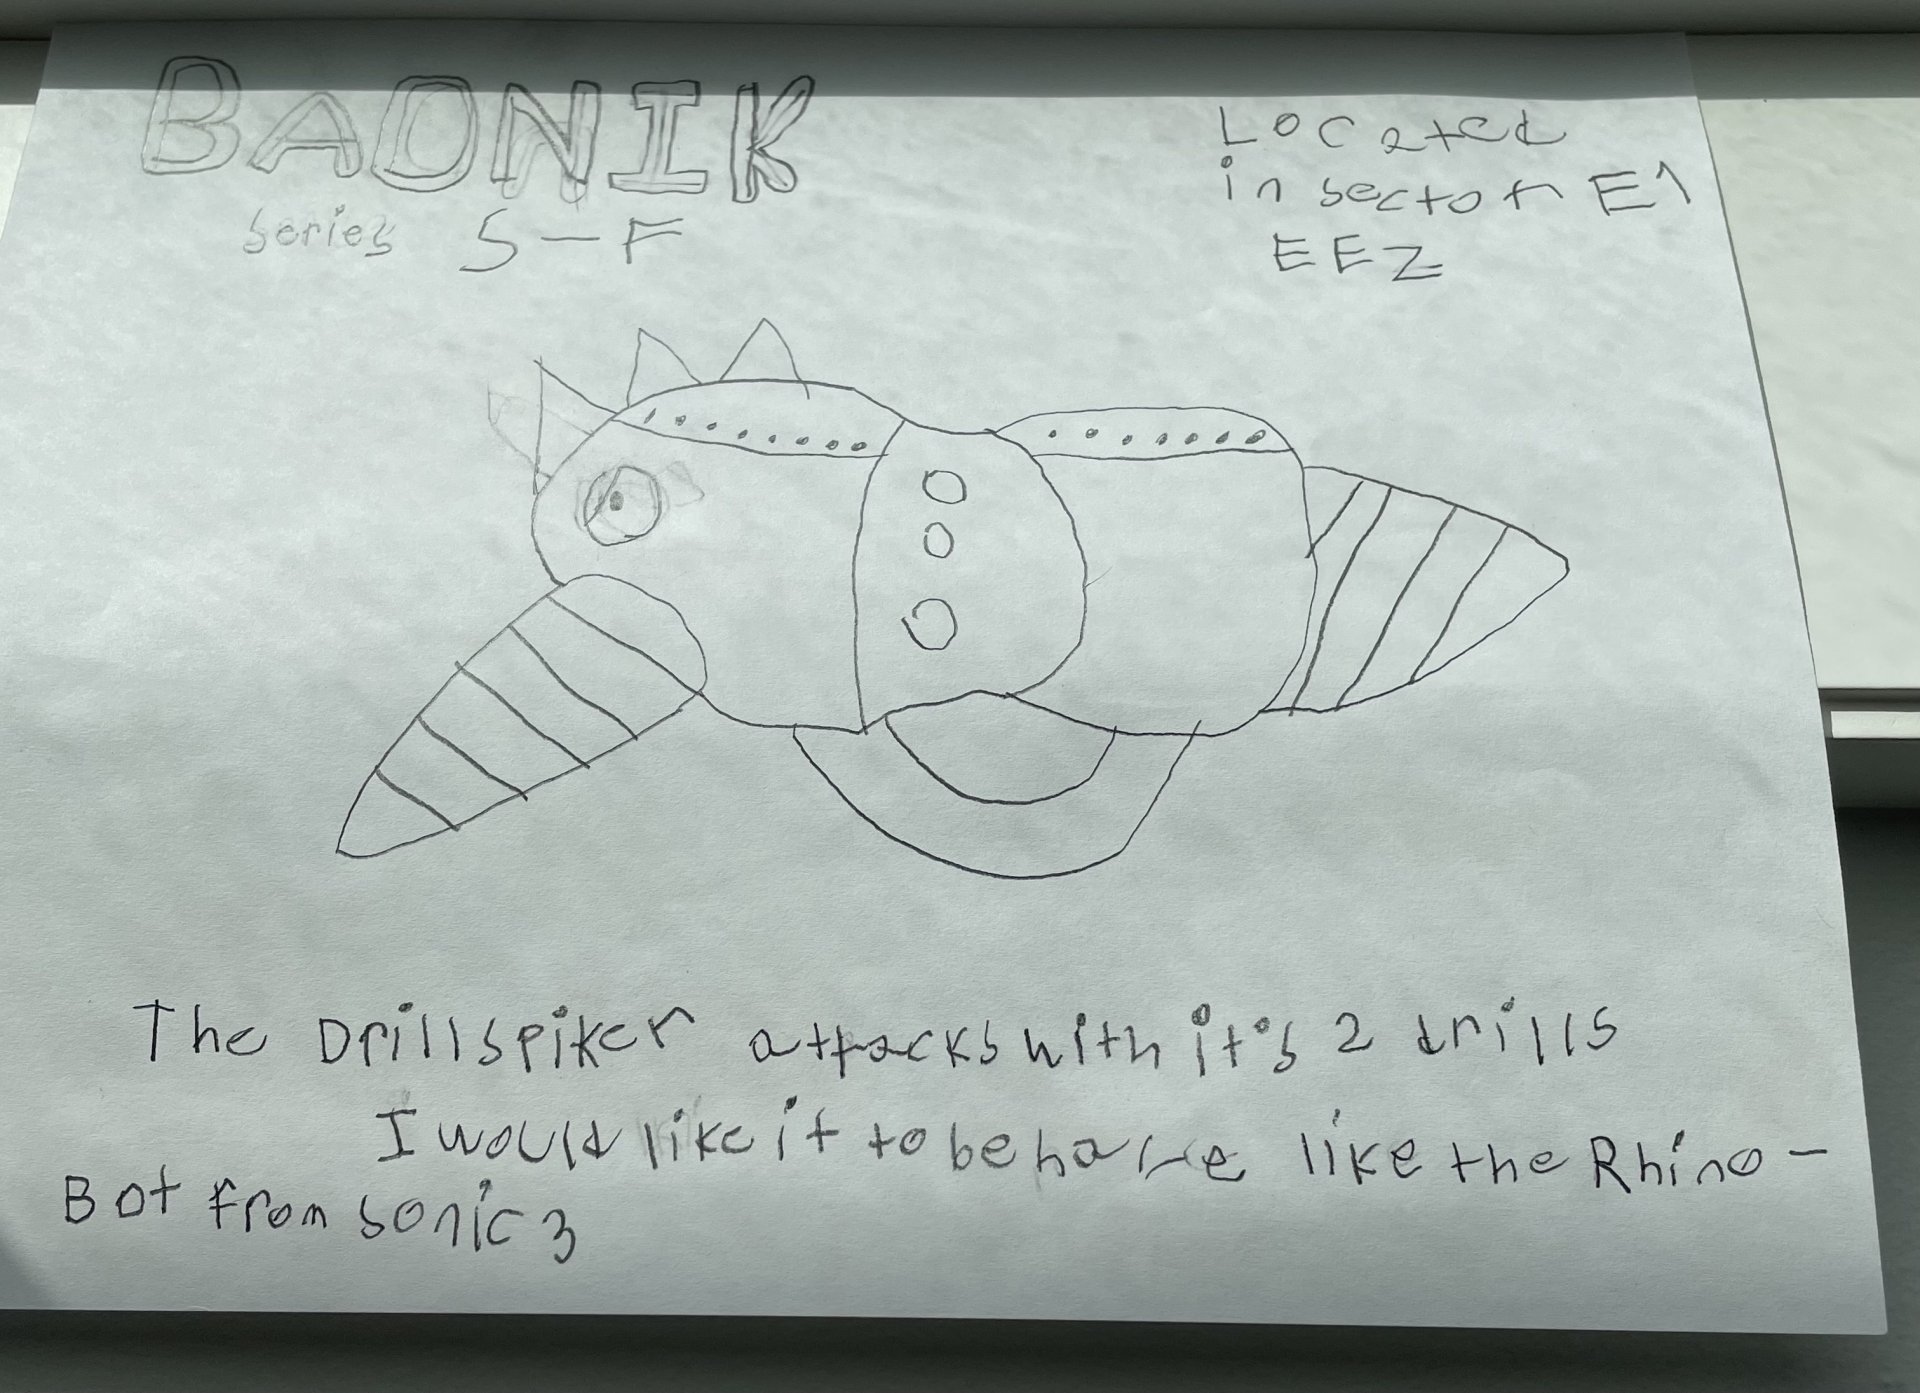 BADNIK
series S-F
Located
in sector E1
EEZ
The Drillspiker attacks with it's 2 drills
I would like it to behave like the Rhino-
Bot from sonic 3